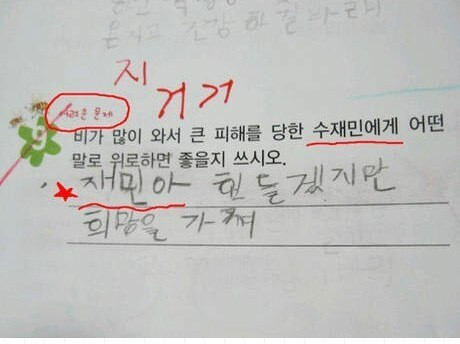 지
거거
어려운 문제
9
비가 많이 와서 큰 피해를 당한 수재민에게 어떤
말로 위로하면 좋을지 쓰시오.
재민아 힘들겠지만
희망을 가져